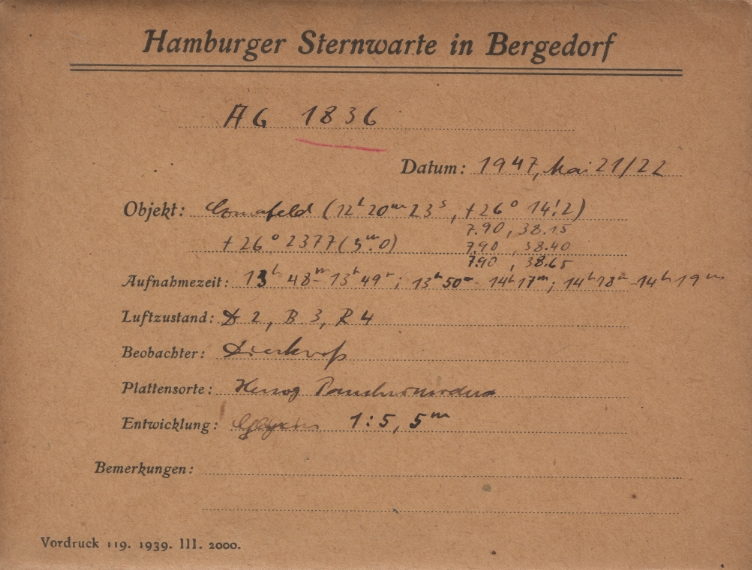 Hamburger Sternwarte in Bergedorf
AG 1836
Datum: 1947, Mai 21/22
Objekt: Comafeld (12ʰ 20ᵐ 23ˢ, +26° 14!2)
7.90, 38.15
+26° 2377 (5ᵐ.0) 7.90, 38.40
7.90, 38.65
Aufnahmezeit: 13ʰ 48ᵐ - 13ʰ 49ᵐ; 13ʰ 50ᵐ - 14ʰ 17ᵐ; 14ʰ 18ᵐ - 14ʰ 19ᵐ
Luftzustand: D 2, B 3, R 4
Beobachter: Dieckvoß
Plattensorte: Herzog
Entwicklung: 1:5, 5ᵐ
Bemerkungen:
Vordruck 119. 1939. III. 2000.